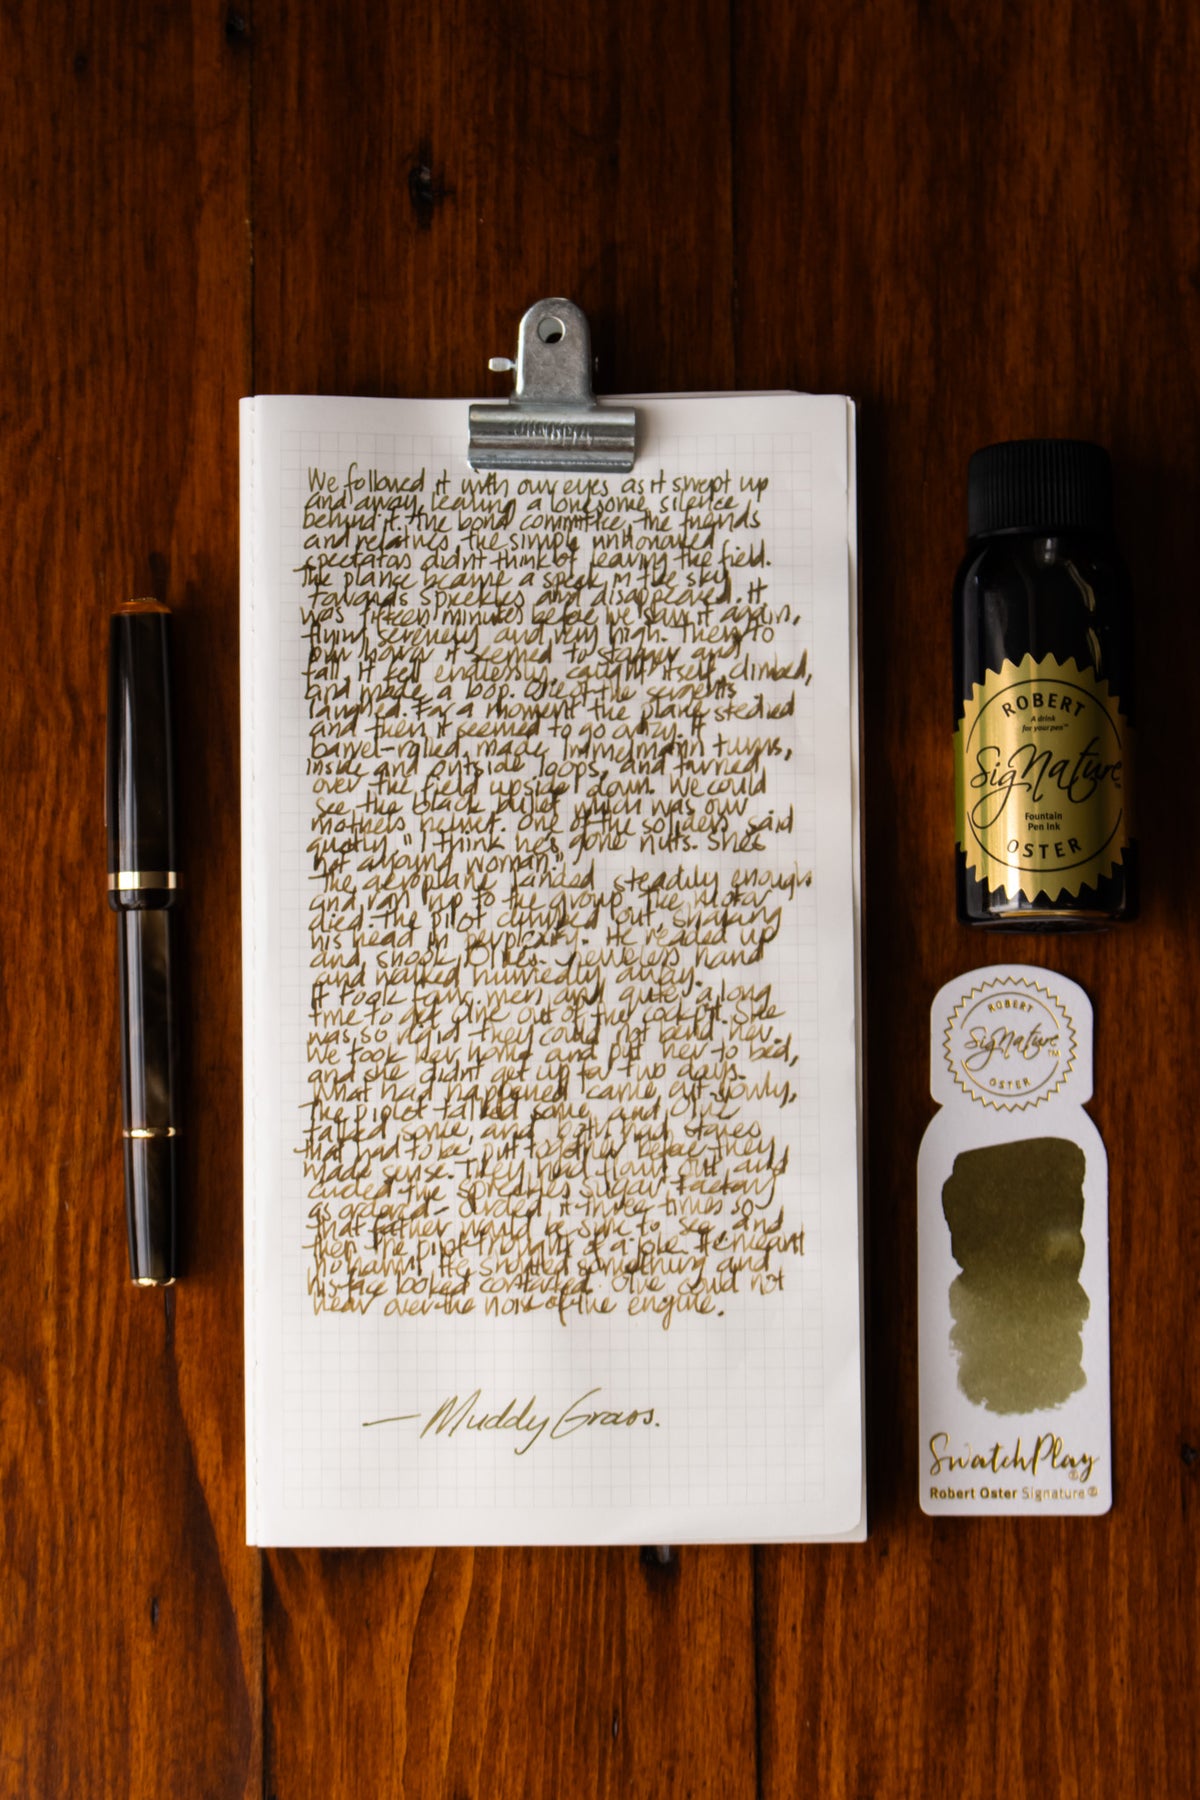 We followed it with our eyes as it swept up
and away, leaving a lonesome silence
behind it. The bond committee, the friends
and relatives the simple unhonored
spectators didnt think of leaving the field.
The plane became a speck in the sky
towards Spreckles and disappeared. It
was fifteen minutes before we saw it again,
flying serenely and very high. Then to
our horror it seemed to stagger and
fall. It fell endlessly, caught itself, climbed,
and made a loop. One of the sergents
laughed. For a moment the plane stedied
and then it seemed to go crazy. It
barrel-rolled, made Immelmann turns,
inside and outside loops, and turned
over the field upside down. We could
see the black bullet which was our
mothers helmet. One of the soliders said
quietly, "I think hes gone nuts. Shes
not a young woman."
The aeroplane landed steadily enough
and ran up to the group. The motor
died. The pilot climbed out, shaking
his head in perplexity. He
and shook Olives hand
and walked hurriedly away.
It took four men and quite a long
time to get Olive out of the cockpit. She
was so rigid they could not bend her.
We took her home and put her to bed,
and she didnt get up for two days.
What had happened came out slowly,
The piolet talked some and Olive
talked some, and both had stories
that had to be put together before they
made sense. They had flown out and
circled the Spreckles Sugar Factory
as ordered - circled it three times so
that father would be sure to see, and
then the pilot thought of a joke. He meant
no harm. He shouted something and
his face looked contorted. Olive could not
hear over the noise of the engine.
— Muddy Graos.
ROBERT
A drink
for your pen™
SigNature
Fountain
Pen Ink
OSTER
ROBERT
SigNature™
OSTER
SwatchPlay
Robert Oster Signature®